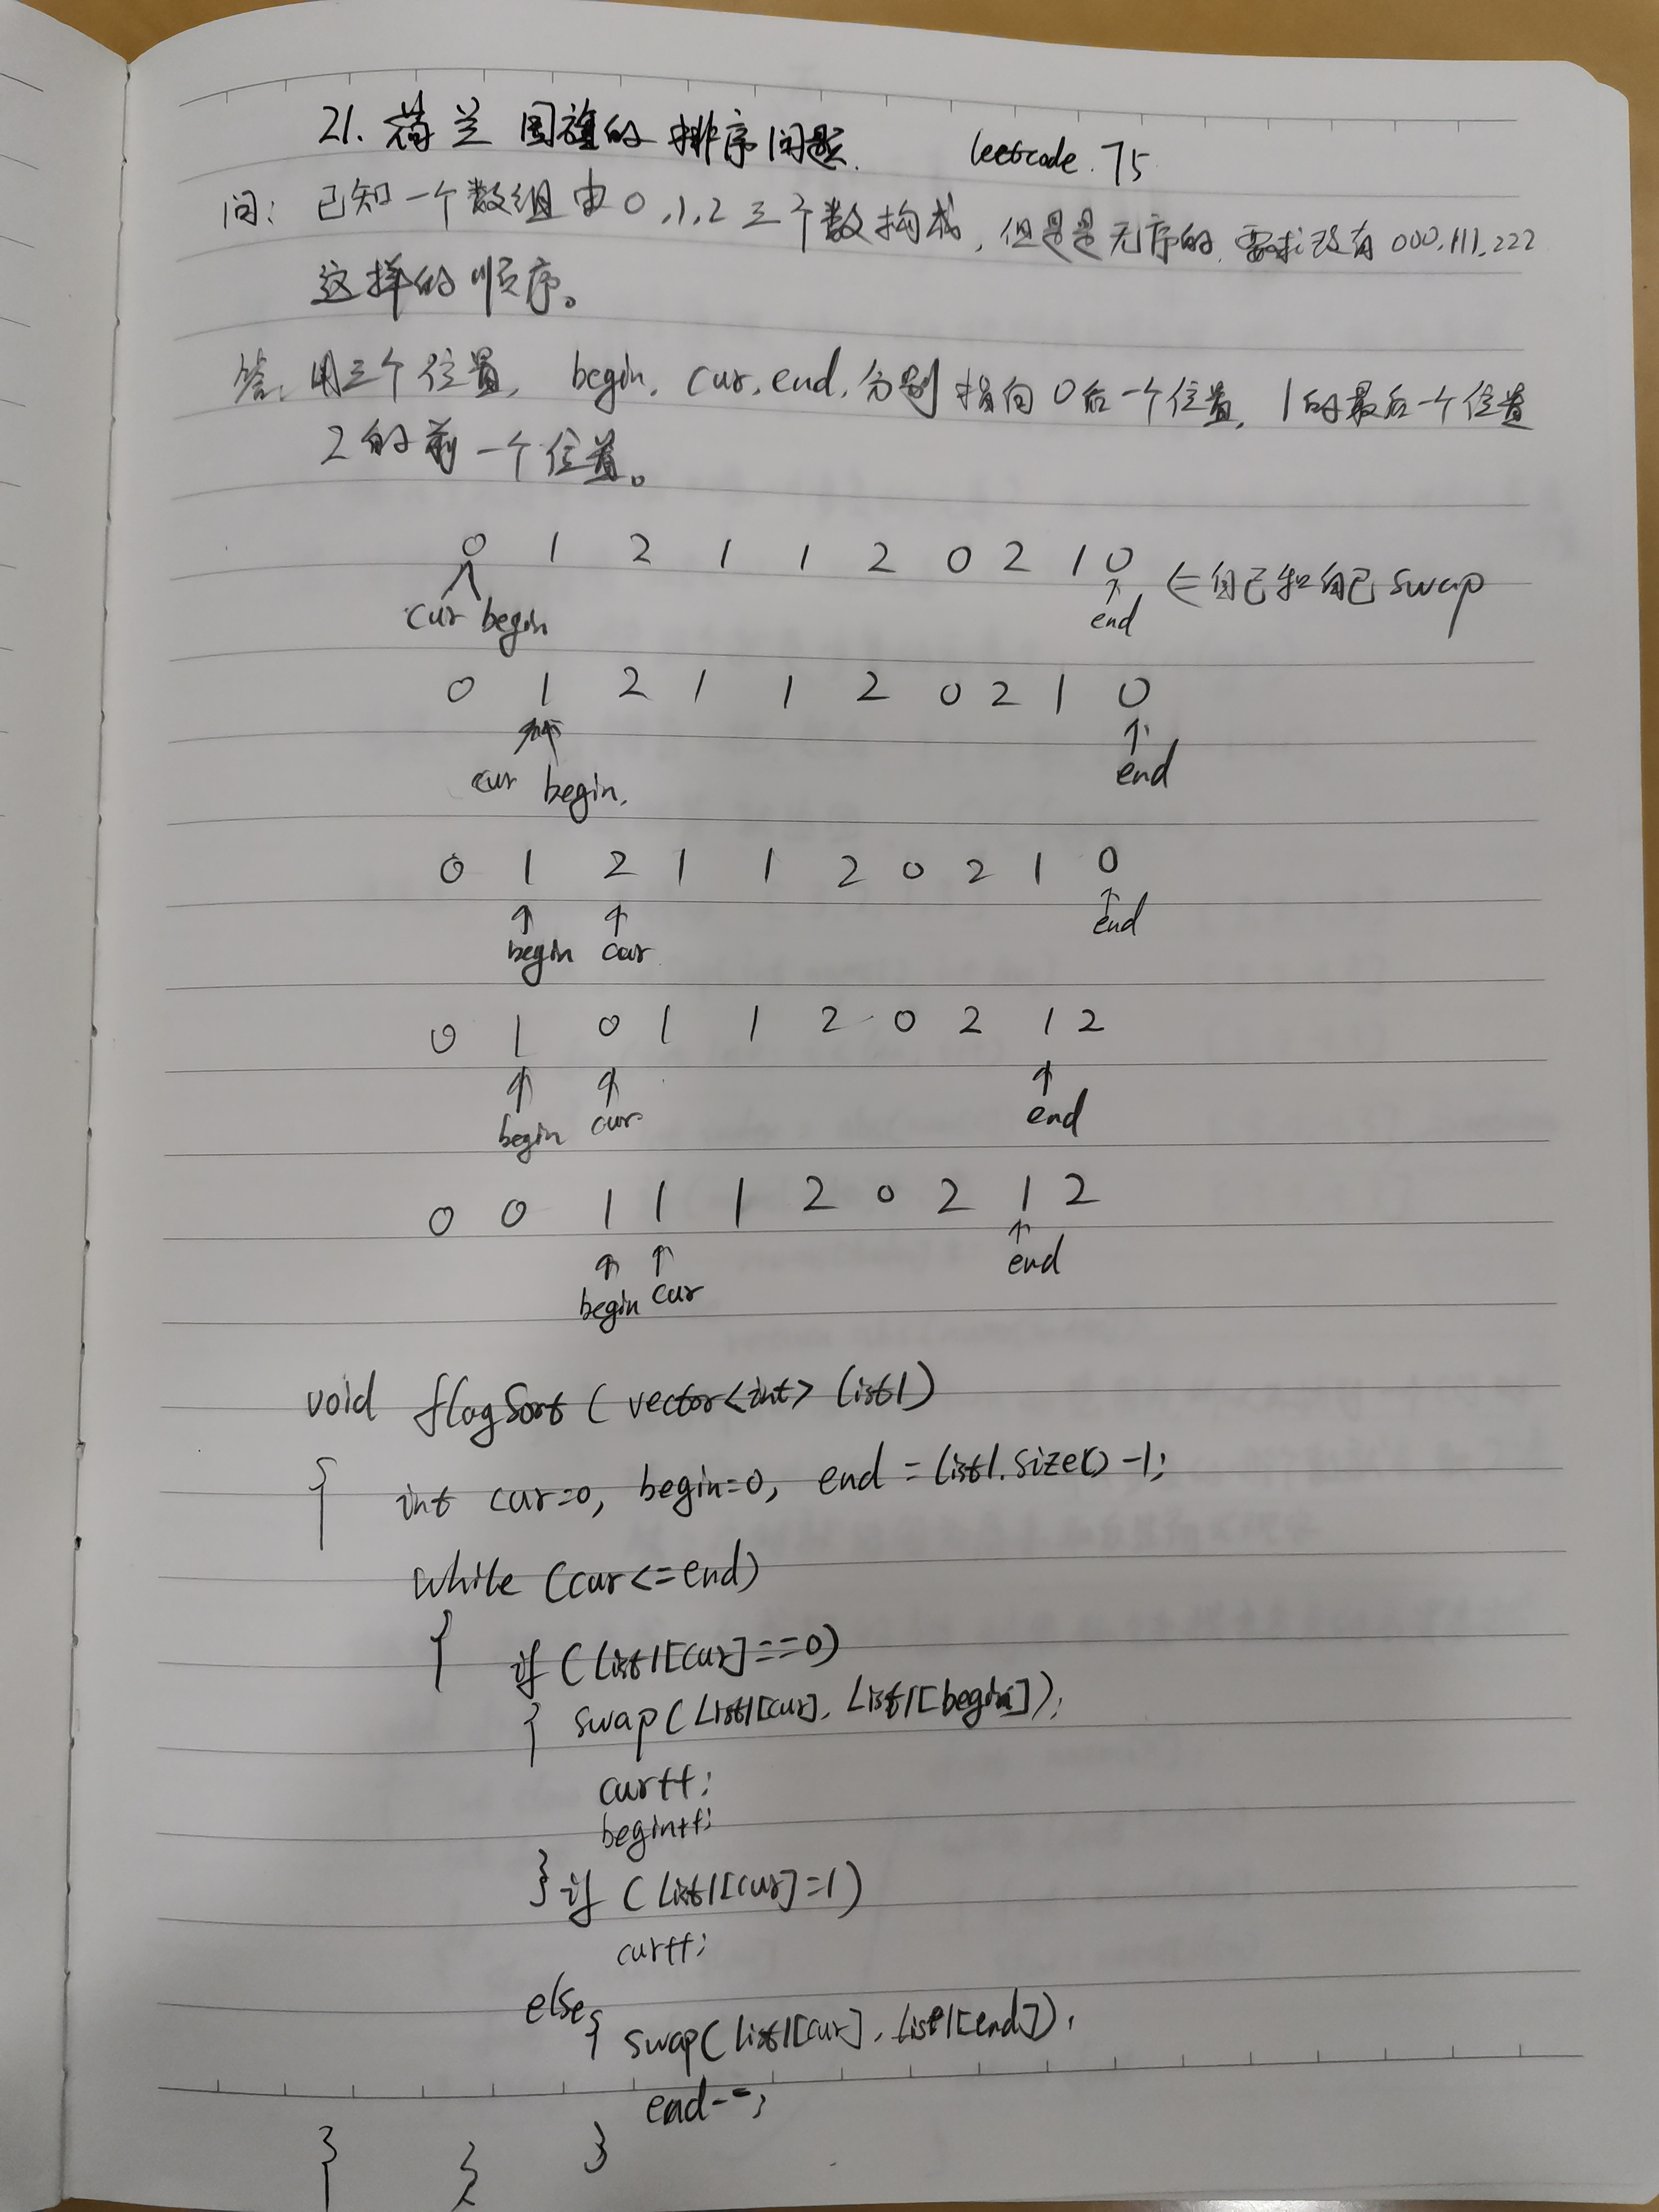 21. 荷兰国旗的排序问题. leetcode.75
问: 已知一个数组由0,1,2三个数构成,但是是无序的.要求没有000,111,222
这样的顺序。
答. 用三个位置, begin, cur, end, 分别指向0后一个位置, 1的最后一个位置
2的前一个位置。
0 1 2 1 1 2 0 2 1 0 <=自己和自己swap
cur begin end
0 1 2 1 1 2 0 2 1 0
cur begin. end
0 1 2 1 1 2 0 2 1 0
begin cur end
0 1 0 1 1 2 0 2 1 2
begin cur end
0 0 1 1 1 2 0 2 1 2
begin cur end
void flagSort(vector<int> list1)
{ int cur=0, begin=0, end=list1.size()-1;
while (cur<=end)
{ if (list1[cur]==0)
{ swap(list1[cur], list1[begin]);
cur++;
begin++;
} if (list1[cur]=1)
cur++;
else{ swap(list1[cur], list1[end]);
end--;
} } }